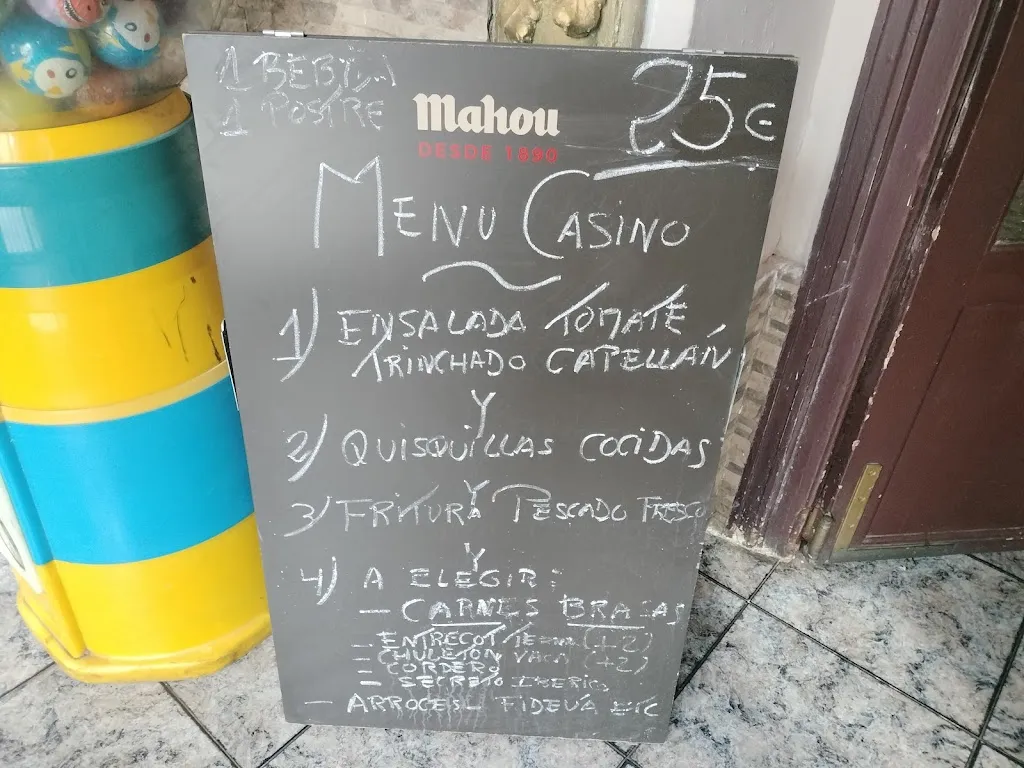 1 BEBIDA
1 POSTRE
25€
Mahou
DESDE 1890
MENU CASINO
1) ENSALADA TOMATE
TRINCHADO CAPELLÁN
Y
2) QUISQUILLAS COCIDAS
Y
3) FRITURA PESCADO FRESCO
Y
4) A ELEGIR:
- CARNES BRASAS
- ENTRECOT (+2)
- CHULETON VACA (+2)
- CORDERO
- SECRETO IBERICO
- ARROCES. FIDEUÁ ETC